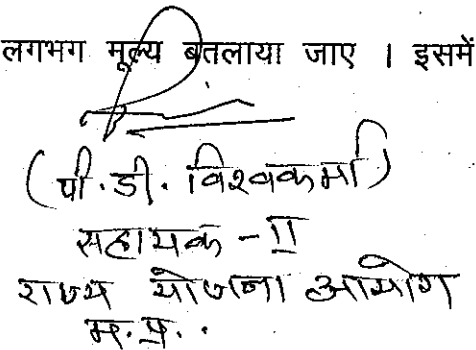 लगभग मूल्य बतलाया जाए । इसमें
(पी. डी. विश्वकर्मा)
सहायक - II
राज्य योजना आयोग
म. प्र. .